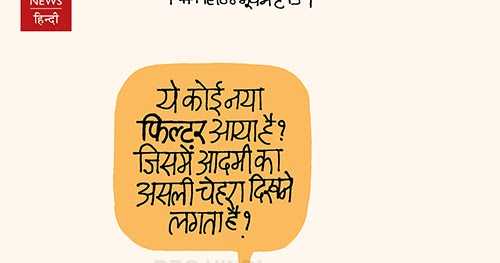 NEWS
हिन्दी
ये कोई नया
फिल्टर आया है?
जिसमें आदमी का
असली चेहरा दिखने
लगता है?